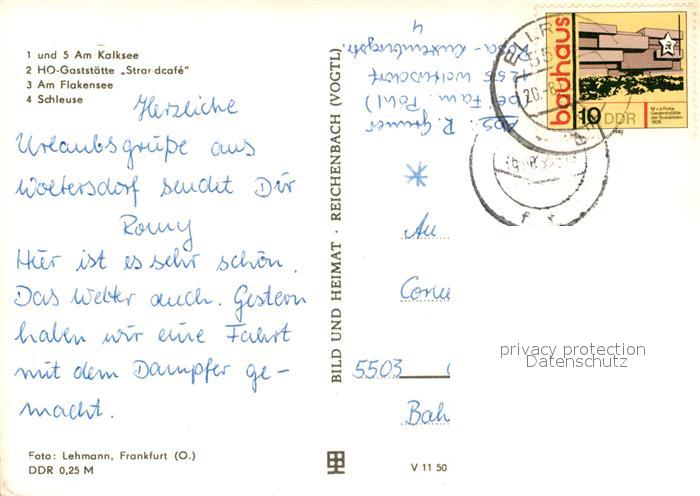 1 und 5 Am Kalksee
2 HO-Gaststätte „Strandcafé"
3 Am Flakensee
4 Schleuse
Herzliche
Urlaubsgrüße aus
Woltersdorf sendet Dir
Romy
Hier ist es sehr schön.
Das Wetter auch. Gestern
haben wir eine Fahrt
mit dem Dampfer ge-
macht.
Foto: Lehmann, Frankfurt (O.)
DDR 0,25 M
BILD UND HEIMAT · REICHENBACH (VOGTL)
V 11 50
Abs. R.
(bei Fam. Pohl)
1255 Woltersdorf
Rosa-Luxemburgstr.
4
bauhaus
10 DDR
M v d Rohe
Gedenkstätte
der Sozialisten
1926
1980
ELLR
55
20.-8.
An
Corne
5503
Bah
privacy protection
Datenschutz